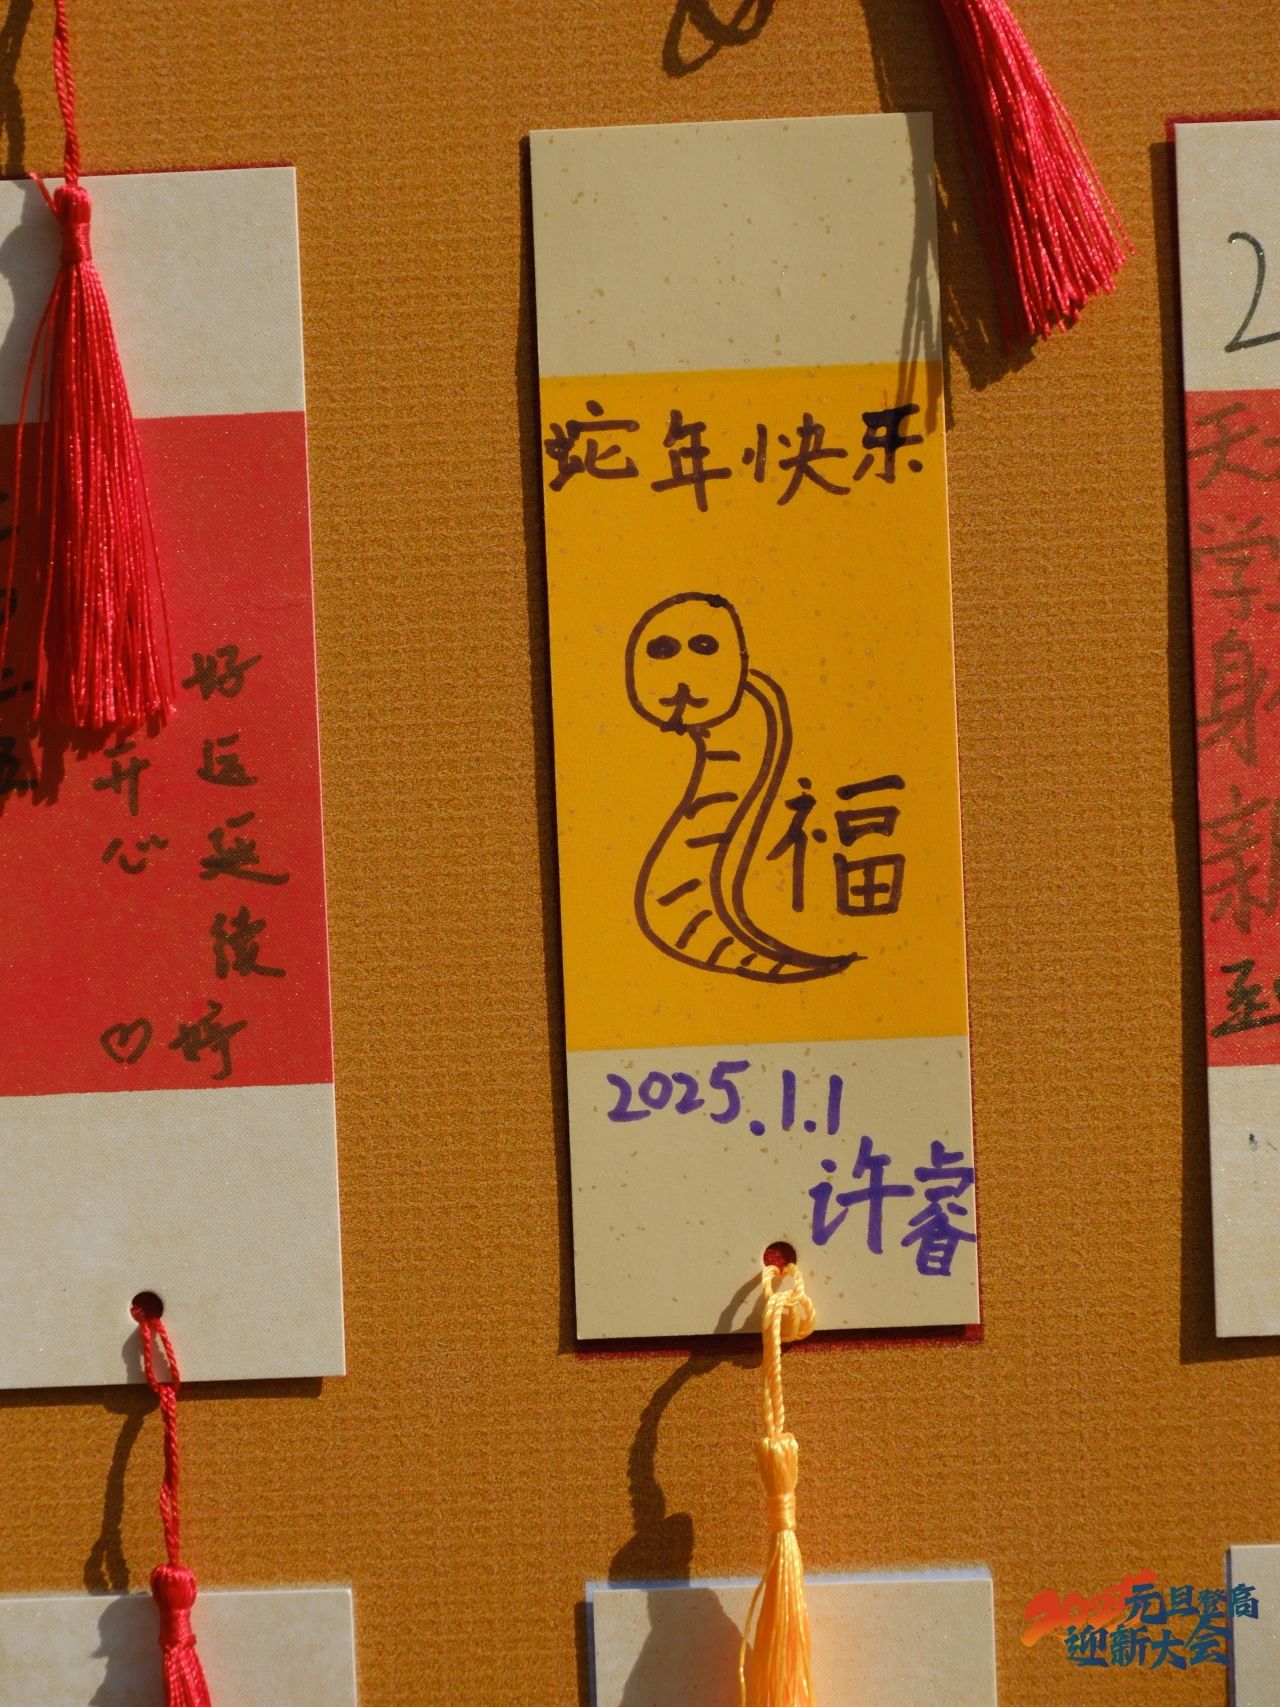 蛇年快乐
福
2025.1.1
许睿
好运延续
开心
2
天
学
身
新
2025元旦登高
迎新大会